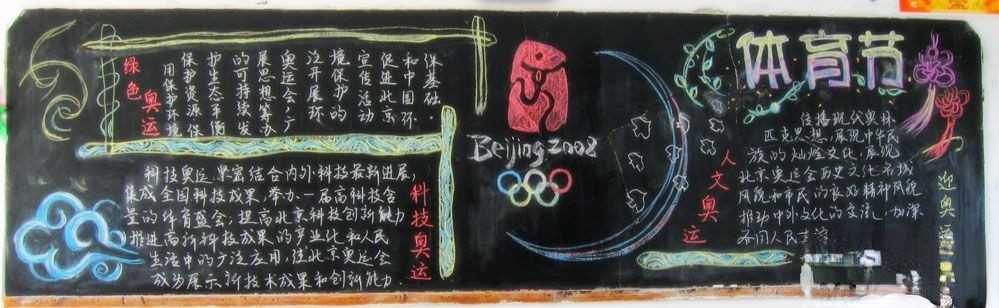 绿色奥运
用保护环境
保护资源保
护生态平衡
的可持续发
展思想筹办
奥运会，广
泛开展环
境保护的
宣传活动
促进北京
和中国环
保基础.
科技奥运
科技奥运，紧密结合内外科技最新进展，
集成全国科技成果，举办一届高科技含
量的体育盛会，提高北京科技创新能力
推进高新科技成果的产业化和人民
生活中的广泛应用，使北京奥运会
成为展示新技术成果和创新能力.
Beijing 2008
人文奥运
体育节
传播现代奥林
匹克思想，展现中华民
族的灿烂文化，展现
北京奥运会历史文化名城
风貌和市民的良好精神风貌
推动中外文化的交流，加深
各国人民之
迎奥运